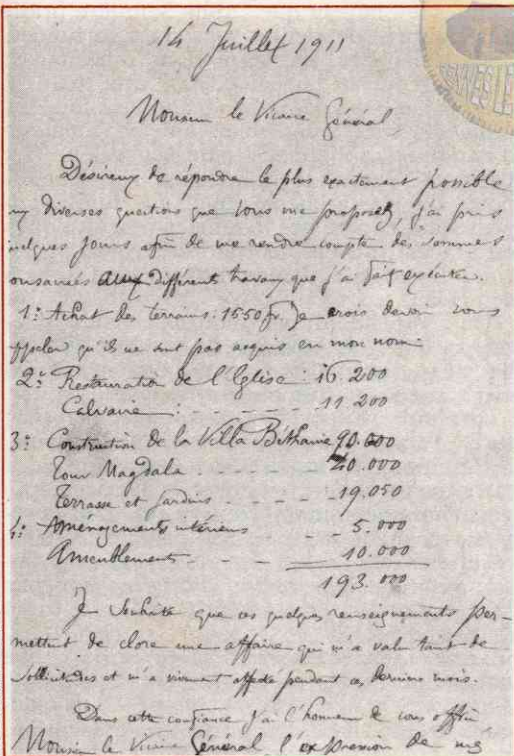 14 Juillet 1911
Monsieur le Vicaire Général,
Désireux de répondre le plus exactement possible
ux diverses questions que vous me proposez, j'ai pris
uelques jours afin de me rendre compte des sommes
onsacrées aux différents travaux que j'ai fait exécuter.
1: Achat des terrains: 1550 fr. Je crois devoir vous
ppeler qu'ils ne sont pas acquis en mon nom
2: Restauration de l'Eglise: 16.200
Calvaire: - - - - 11 200
3: Construction de la Villa Béthanie 90.000
Tour Magdala - - - - 40.000
Terrasse et jardins - - - - 19.050
4: Aménagements intérieurs - - 5.000
Ameublements - - - 10.000
193.000
Je souhaite que ces quelques renseignements per-
mettent de clore une affaire qui m'a valu tant de
sollicitudes et m'a vivement affecté pendant ces derniers mois.
Dans cette confiance j'ai l'honneur de vous offrir
Monsieur le Vicaire Général, l'expression de